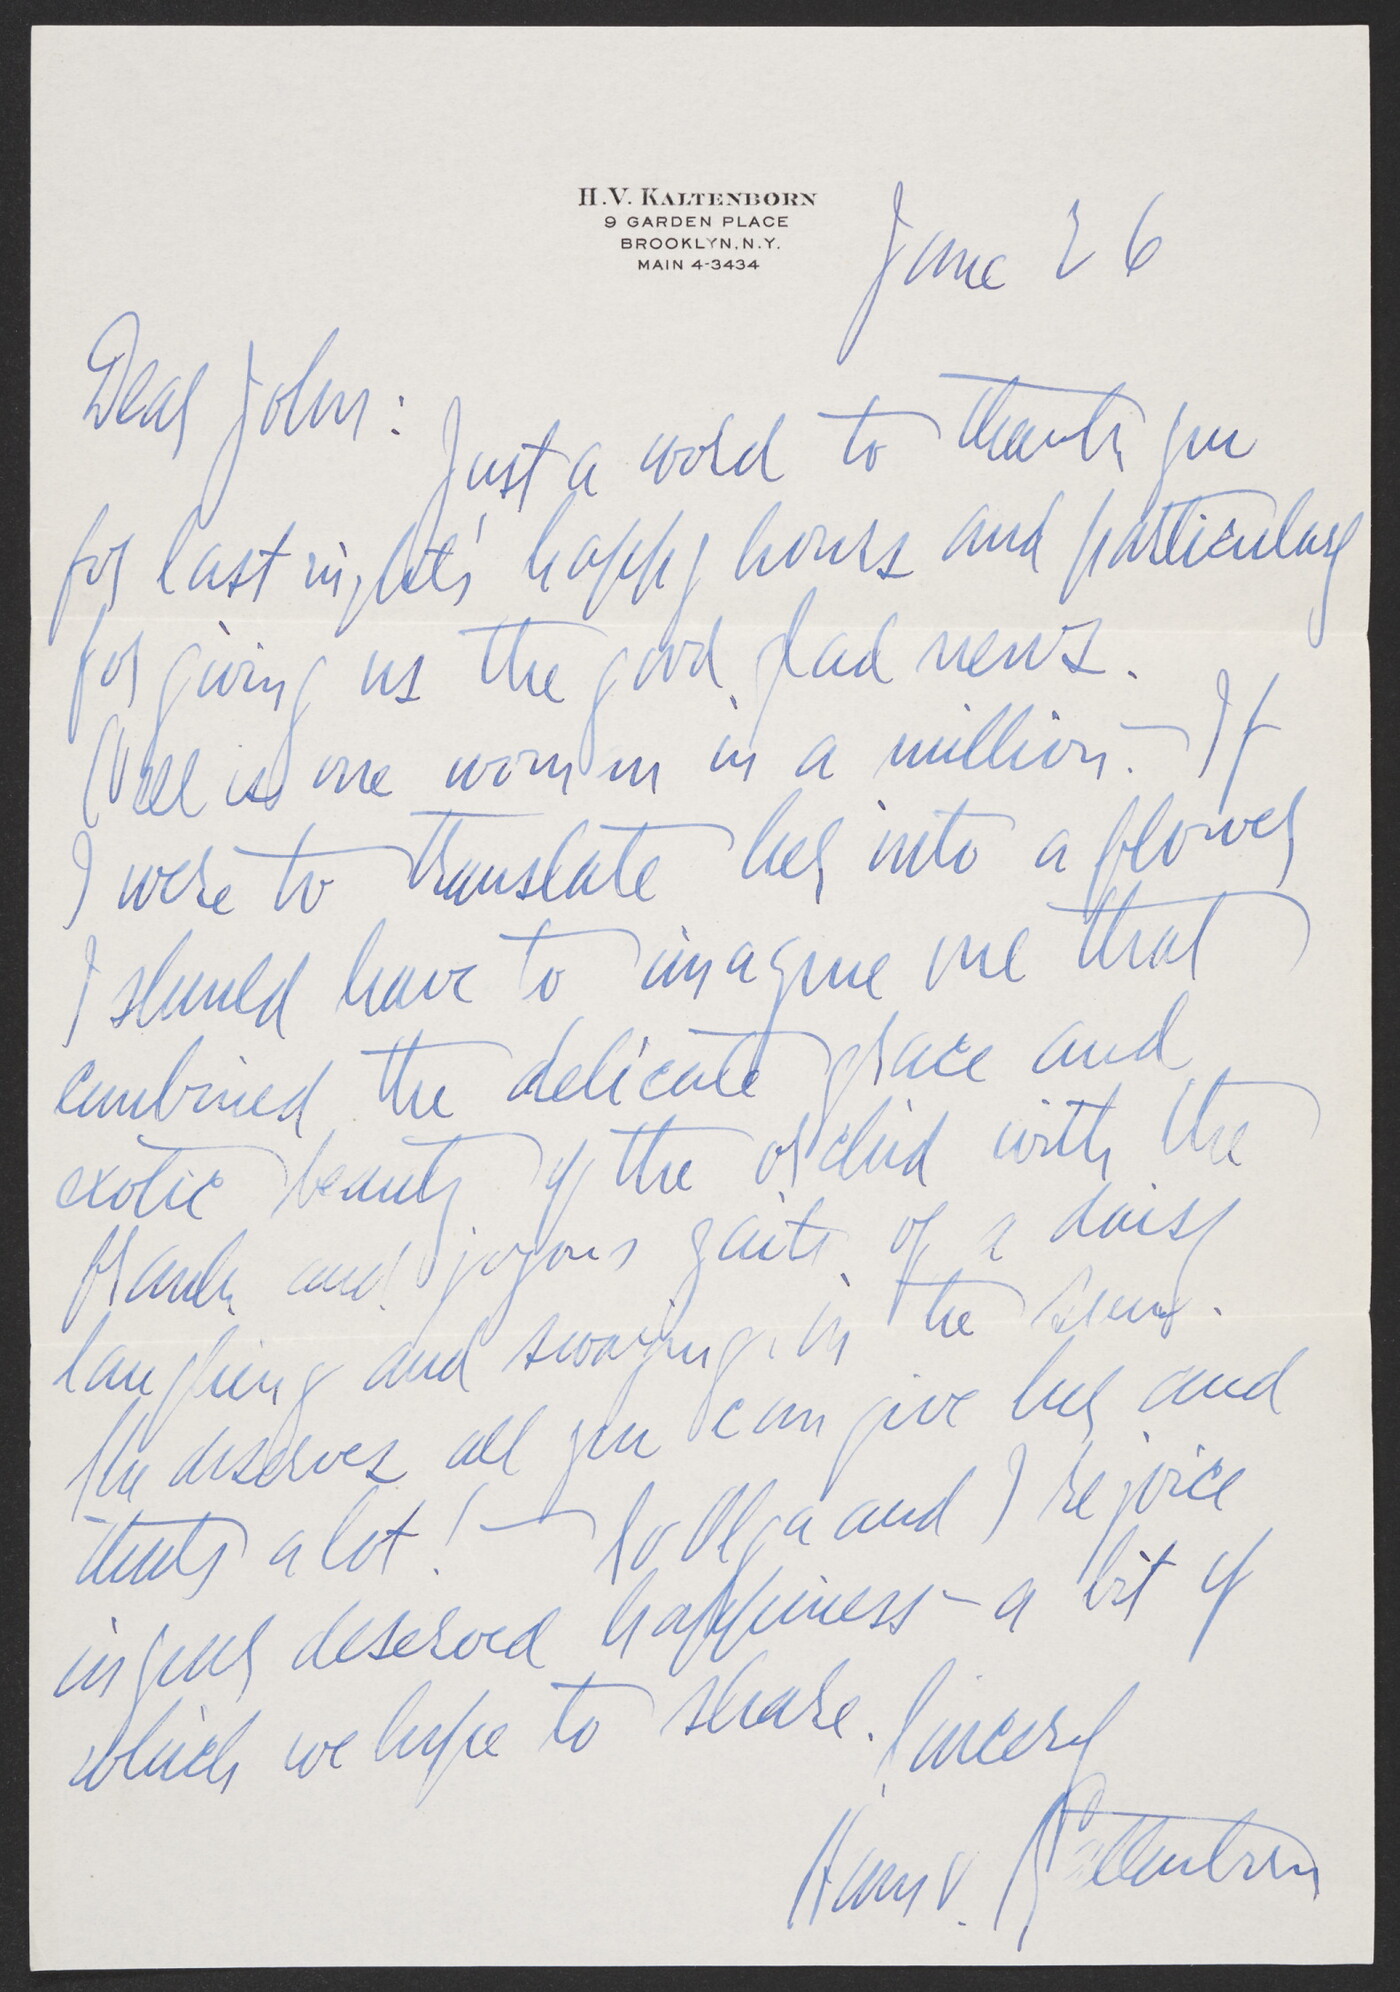 H.V. KALTENBORN
9 GARDEN PLACE
BROOKLYN, N.Y.
MAIN 4-3434
June 26
Dear John:
Just a word to thank you
for last night's happy hours and particularly
for giving us the good glad news.
is one woman in a million. — If
I were to translate her into a flower
I should have to imagine one that
combined the delicate grace and
exotic beauty of the orchid with the
frank and joyous gaity of a daisy
laughing and swaying in the sun.
She deserves all you can give her and
that's a lot! — So Olga and I rejoice
in your deserved happiness — a bit of
which we hope to share. Sincerely
Hans V. Kaltenborn